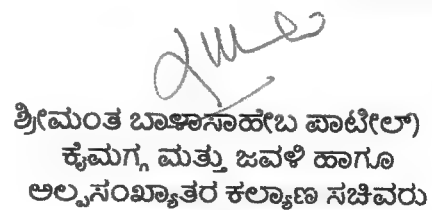 ಶ್ರೀಮಂತ ಬಾಳಾಸಾಹೇಬ ಪಾಟೀಲ್)
ಕೈಮಗ್ಗ ಮತ್ತು ಜವಳಿ ಹಾಗೂ
ಅಲ್ಪಸಂಖ್ಯಾತರ ಕಲ್ಯಾಣ ಸಚಿವರು